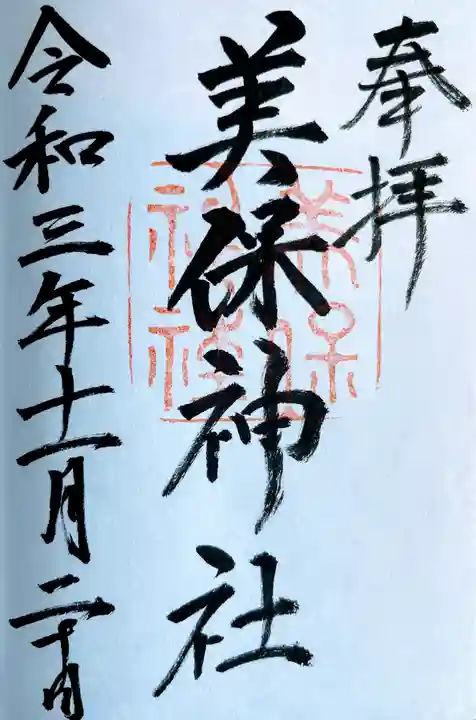 奉拝
美保神社
美保
神社
令和三年十一月二十日